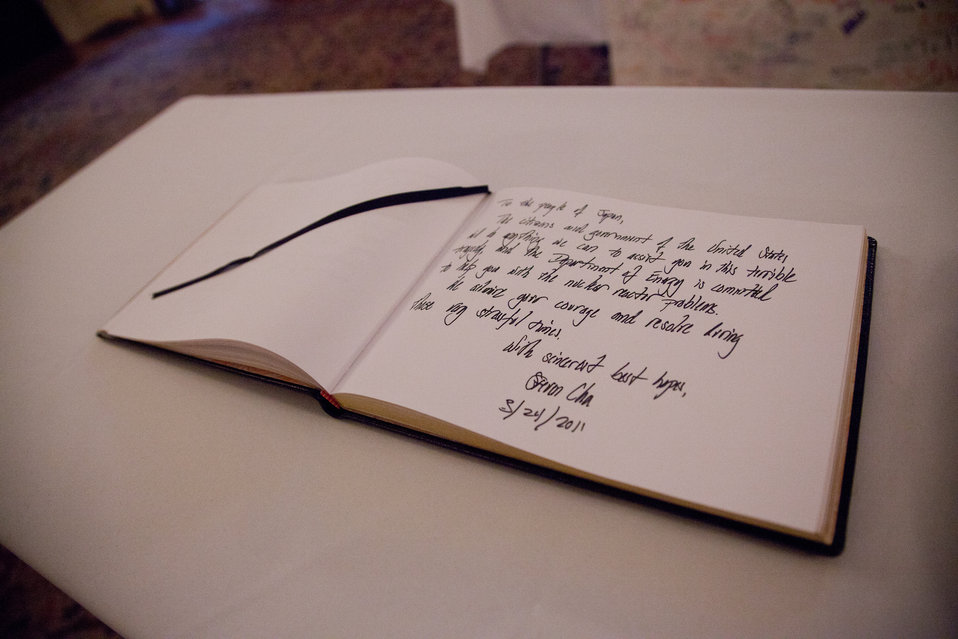 To the people of Japan,
The citizens and government of the United States
will do anything we can to assist you in this terrible
tragedy, and the Department of Energy is committed
to help you with the nuclear reactor problems.
We admire your courage and resolve during
these very stressful times.
With sincerest best hopes,
Steven Chu
3/24/2011